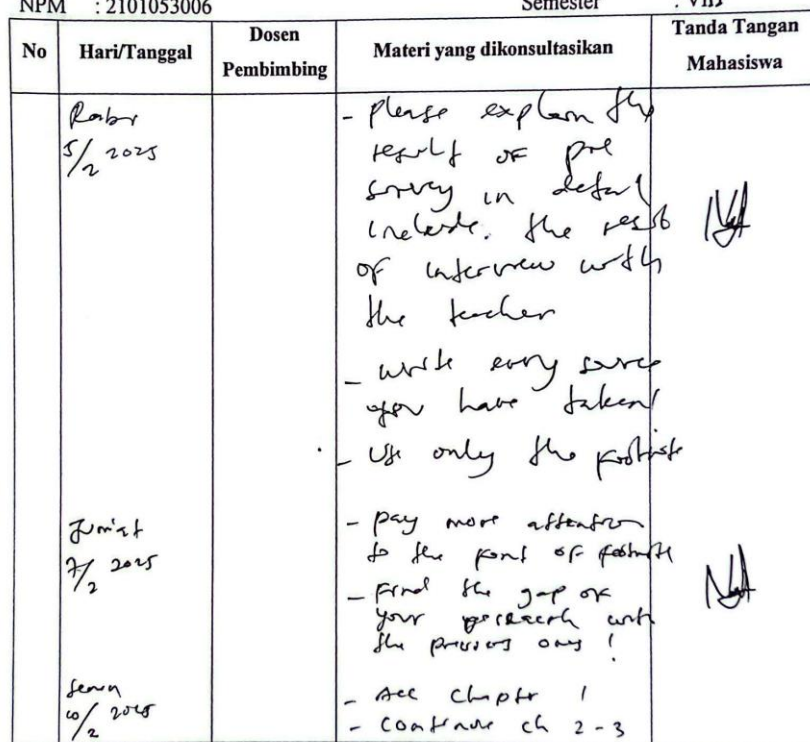 NPM : 2101053006 Semester : VIII
No Hari/Tanggal Dosen Pembimbing Materi yang dikonsultasikan Tanda Tangan Mahasiswa
Rabu
5/2 2025
- Please explain the
result of pre
survey in detail
include. the result
of interview with
the teacher
- write every source
you have taken!
- Use only the footnote
Jum'at
7/2 2025
- pay more attention
to the font of footnote
- Find the gap of
your research with
the previous ones !
Senin
10/2 2025
- Acc chapter 1
- continue ch 2-3